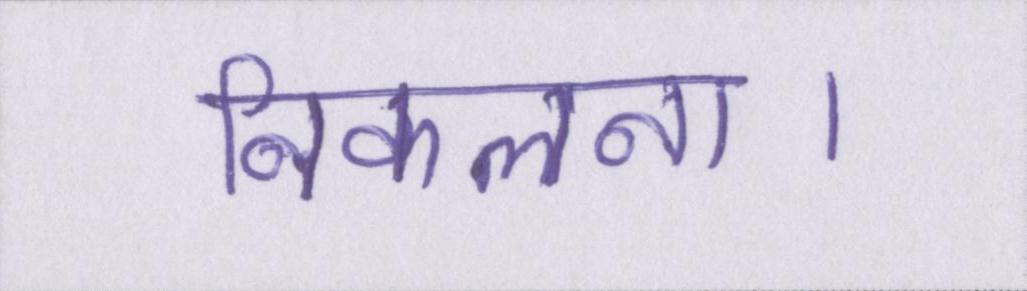 निकलना।